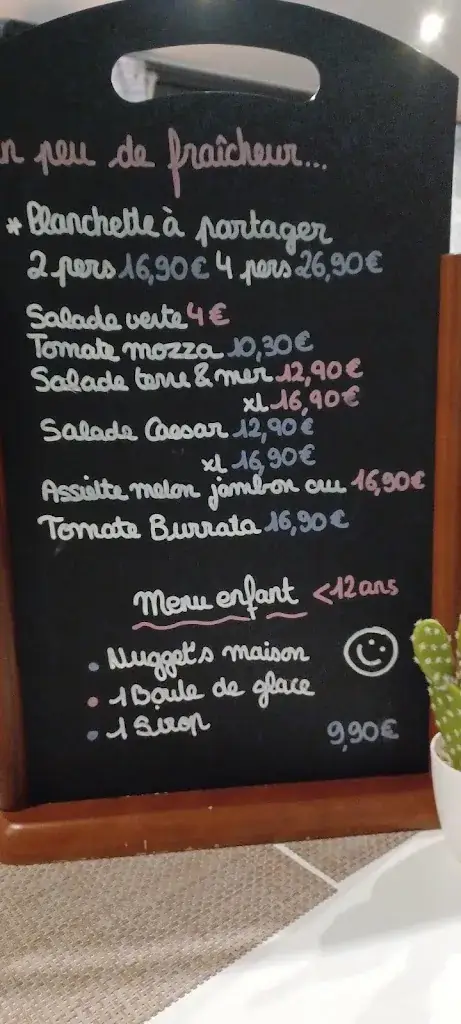 n peu de fraîcheur...
* Planchette à partager
2 pers 16,90€ 4 pers 26,90€
Salade verte 4€
Tomate mozza 10,30€
Salade terre & mer 12,90€
xL 16,90€
Salade Caesar 12,90€
xL 16,90€
Assiette melon jambon cru 16,90€
Tomate Burrata 16,90€
Menu enfant <12ans
• Nugget's maison
• 1 Boule de glace
• 1 Sirop
9,90€